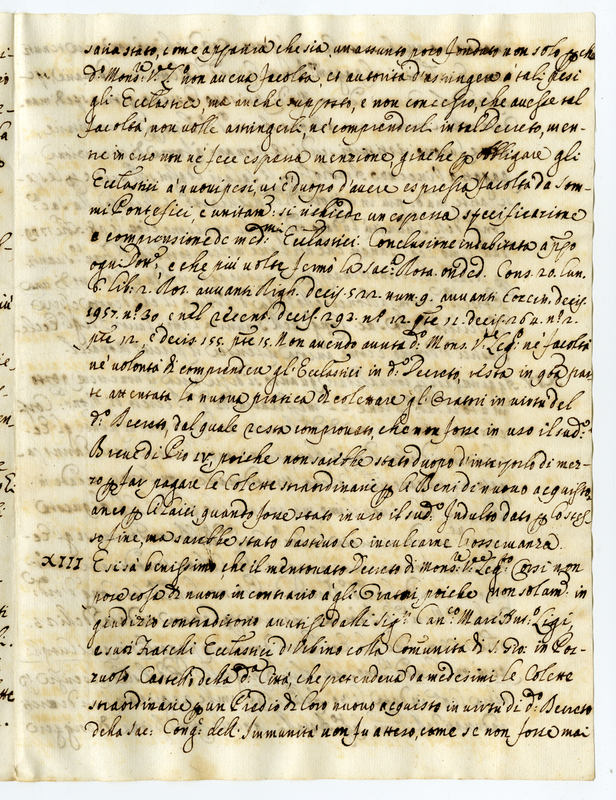 sana stato, come apparià che sia un assunto poco fondato non solo p che
d.º Mons.re V.e L.º non aveva facoltà, et autorità d'astringere à tali pesi
gli Ecclastici, ma anche supposto, e non concesso, che avesse tal
facoltà non volle astringerli, ne comprenderli in tal Decreto, men-
tre in esso non ne fece espressa menzione, giache p obbligare gli
Ecclastici à nuovi pesi, vi è duopo d'avere espressa facoltà da Som-
mi Pontefici, e unitam.e si richiede un espressa specificazione
e comprensione de med.mi Ecclastici. Conclusione indubitata app.º
ogni Dott.e, e che più volte fermò la Sac. Rota. onded. Cons. 20. lun.
6. lib. 2. Rot. avvanti Righ. decis. 522. num. 9. avvanti Coccin. decis.
1957. n.º 30 e nell recent. decis. 292. n.º 12. pte 11. decis. 264. n.º 2.
pte 12. e decis. 155. pte 15. Non avendo avuta d.º Mons. V.e Leg.º ne facoltà
ne volontà di comprendere gl'Ecclastici in d.º Decreto, resta in q.ta par-
te attentata la nuova pratica di colettare gl'Oratori in virtù del
d.º Decreto, dal quale resta comprovato, che non fosse in uso il sud.º
Breve di Pio IV, poiche non sarebbe stato duopo d'interporlo di mez-
zo p far pagare le Colette straordinarie p li Beni di nuovo acquisto,
anco p li laici, quando fosse stato in uso il sud.º Indulto dato p lo stes-
so fine, ma sarebbe stato bastivole inculcarne l'osservanza.
XIII E si sà benissimo, che il mentovato Decreto di Mons.re V.e Leg.to Corsi non
pose cosa di nuovo in contrario à gli Oratori, poiche non solam. in
giudizio contradittorio avuto si dalli Sig.ri Can.co Marc'Ant.º Ligi,
e suoi Fratelli Ecclastici d'Urbino colla Comunità di S. Gio: in Poz-
zuolo Castello della d.a Città, che pretendeva da medesimi le Colette
straordinarie p un Predio di loro nuovo acquisto in virtù di d.º Decreto
della Sac. Cong. dell'Immunità non fu atteso, come se non fosse mai